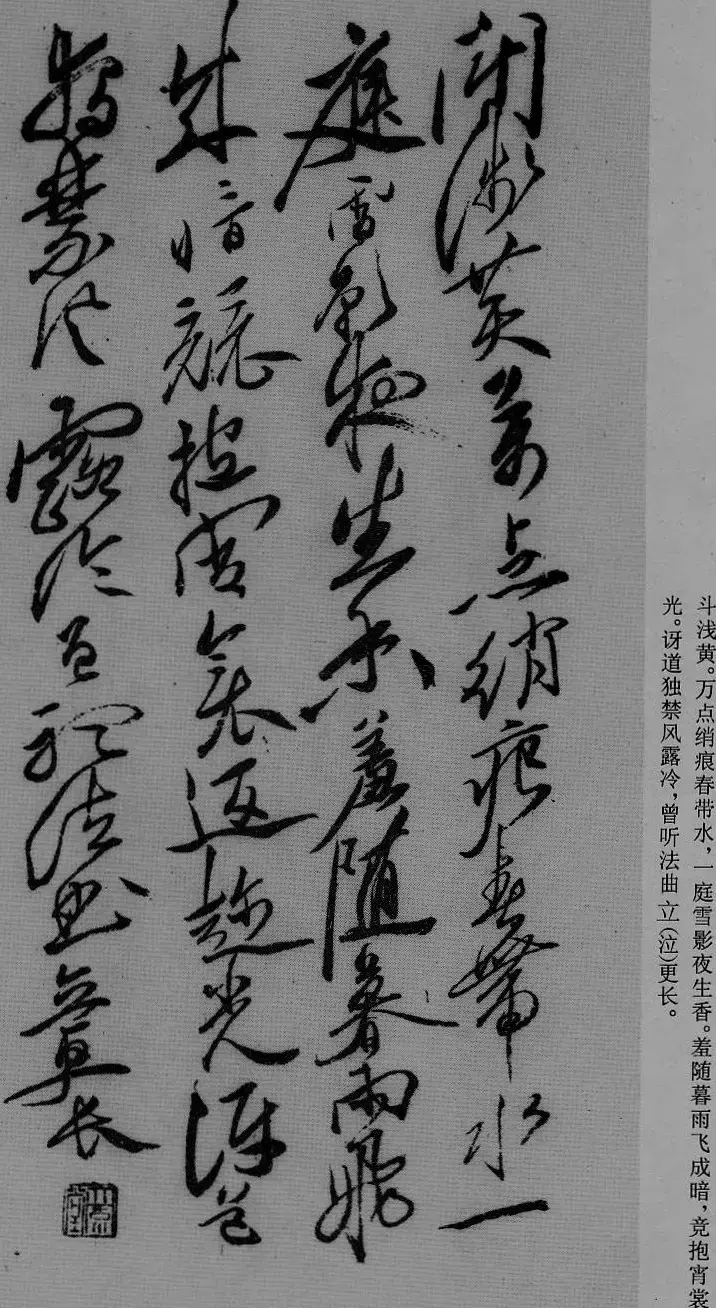 鬥淺黃萬點綃痕春帶水一
庭雪影夜生香羞隨暮雨飛
成暗競抱宵裳趁光訝道
獨禁風露冷曾聽法曲立更長
斗浅黄。万点绡痕春带水，一庭雪影夜生香。羞随暮雨飞成暗，竞抱宵裳
光。讶道独禁风露冷，曾听法曲立(泣)更长。